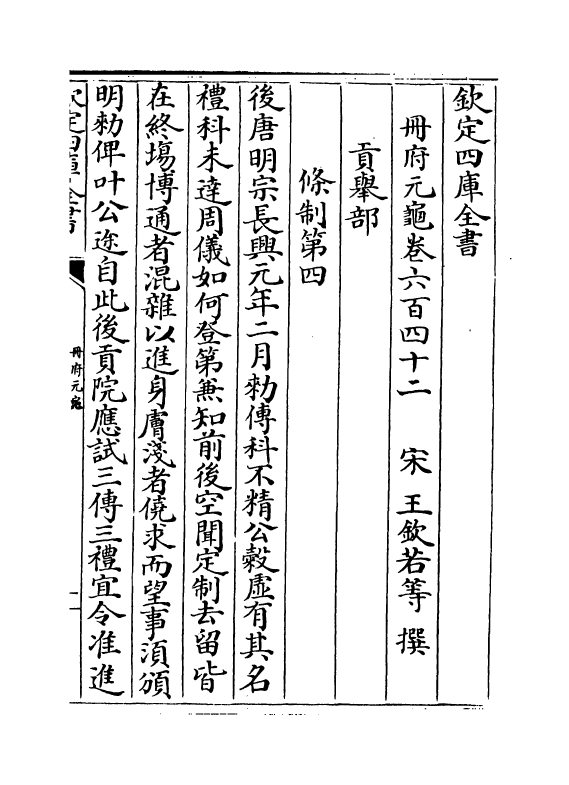 欽定四庫全書
冊府元龜卷六百四十二　宋　王欽若等　撰
貢舉部
條制第四
後唐明宗長興元年二月勑傳科不精公穀虛有其名
禮科未達周儀如何登第兼知前後空聞定制去留皆
在終場博通者混雜以進身膚淺者僥求而望事須頒
明勑俾叶公途自此後貢院應試三傳三禮宜令准進
欽定四庫全書
冊府元龜
一